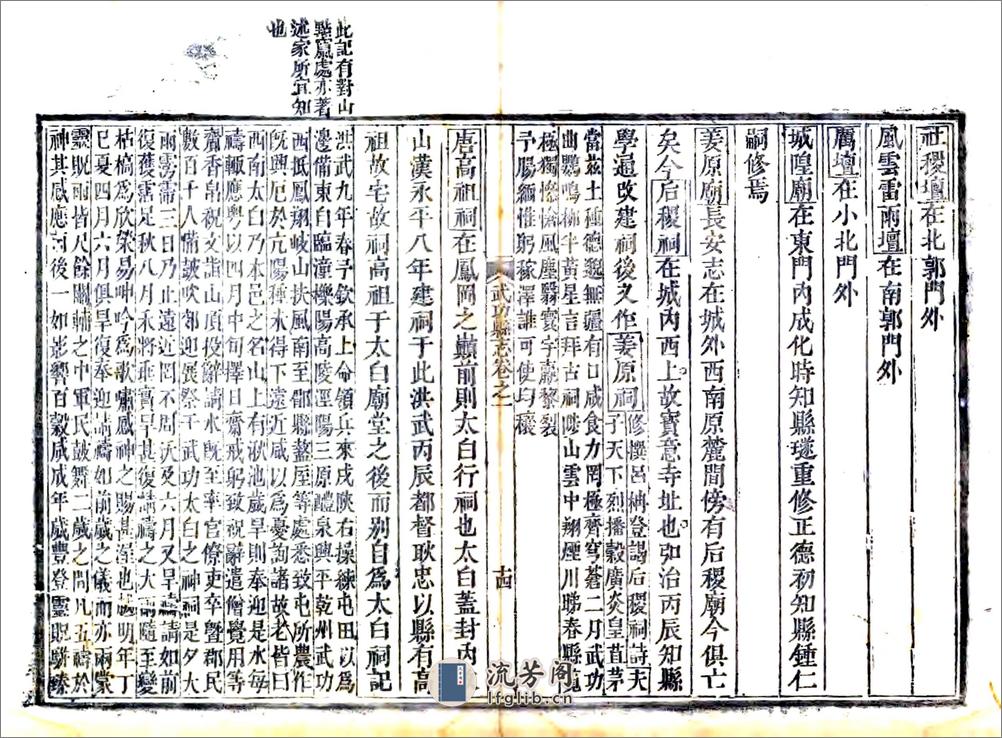 社稷壇在北郭門外
風雲雷雨壇在南郭門外
厲壇在小北門外
城隍廟在東門內成化時知縣璲重修正德初知縣鍾仁
嗣修焉
姜原廟長安志在城外西南原麓間傍有后稷廟今俱亡
矣今后稷祠在城內西上故寶意寺址也弘治丙辰知縣
學通改建祠後又作姜原祠
修撰呂柟登謁后稷祠詩夫
子天下烈播穀廣炎皇茅
當茲土種德巍無疆有口咸食力罔極齊穹蒼二月武功
曲鸚鳴柳半黃星言拜古祠陟山雲中翔煙川睇春巘覽
極獨愴風塵翳寰宇黎裂
予腸緬惟躬稼澤誰可使均穰
武功縣志卷之一
十四
唐高祖祠在鳳岡之巔前則太白行祠也太白蓋封內
山漢永平八年建祠于此洪武丙辰都督耿忠以縣有高
祖故宅故祠高祖于太白廟堂之後而別自為太白祠記
此記有對山
點竄處亦著
述家所宜知
也
洪武九年春予欽承上命領兵來戍陝右操練屯田以為
邊備東自臨潼櫟陽高陵涇陽三原醴泉興平乾州武功
西抵鳳翔岐山扶風南至郿縣盩厔等處悉致屯所農作
既興厄於亢陽種未得下遠近咸以為憂詢諸故老皆曰
西南太白乃本邑之名山上有湫池歲旱則奉迎是水每
禱輒應粵以四月中旬擇日齋戒躬致祝辭遣僧覺用等
齎香帛祝文詣山頂投辭請水既至率官僚吏卒暨郡民
數百千人備鼓吹郊迎展祭于武功太白之神祠是夕大
雨霶霈三日乃止遠近罔不周浹及六月又旱禱請如前
復獲霑足秋八月禾將垂實旱甚復請禱之大雨隨至變
枯槁為欣榮易呻吟為歌嘯感神之賜甚渥也越明年丁
巳夏四月六月俱旱復奉迎請禱如前歲之儀而亦兩蒙
靈貺雨皆尺餘關輔之中軍民鼓舞二歲之間凡五禱於
神其感應前後一如影響百穀咸成年歲豐登靈貺駢臻
流芳阁
lfglib.cn